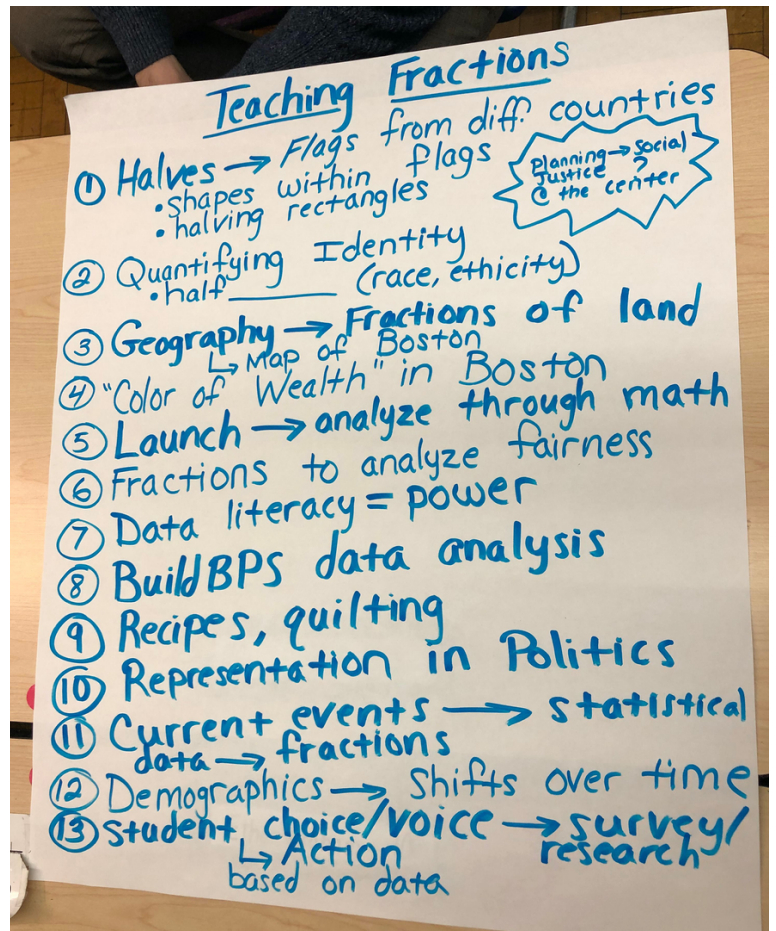 Teaching Fractions
① Halves → Flags from diff. countries
• shapes within flags
• halving rectangles
Planning → Social
Justice ?
@ the center
② Quantifying Identity
• half ______ (race, ethicity)
③ Geography → Fractions of land
↳ Map of Boston
④ "Color of Wealth" in Boston
⑤ Launch → analyze through math
⑥ Fractions to analyze fairness
⑦ Data literacy = power
⑧ BuildBPS data analysis
⑨ Recipes, quilting
⑩ Representation in Politics
⑪ Current events → statistical
data → fractions
⑫ Demographics → Shifts over time
⑬ Student choice/voice → survey/
research
↳ Action
based on data